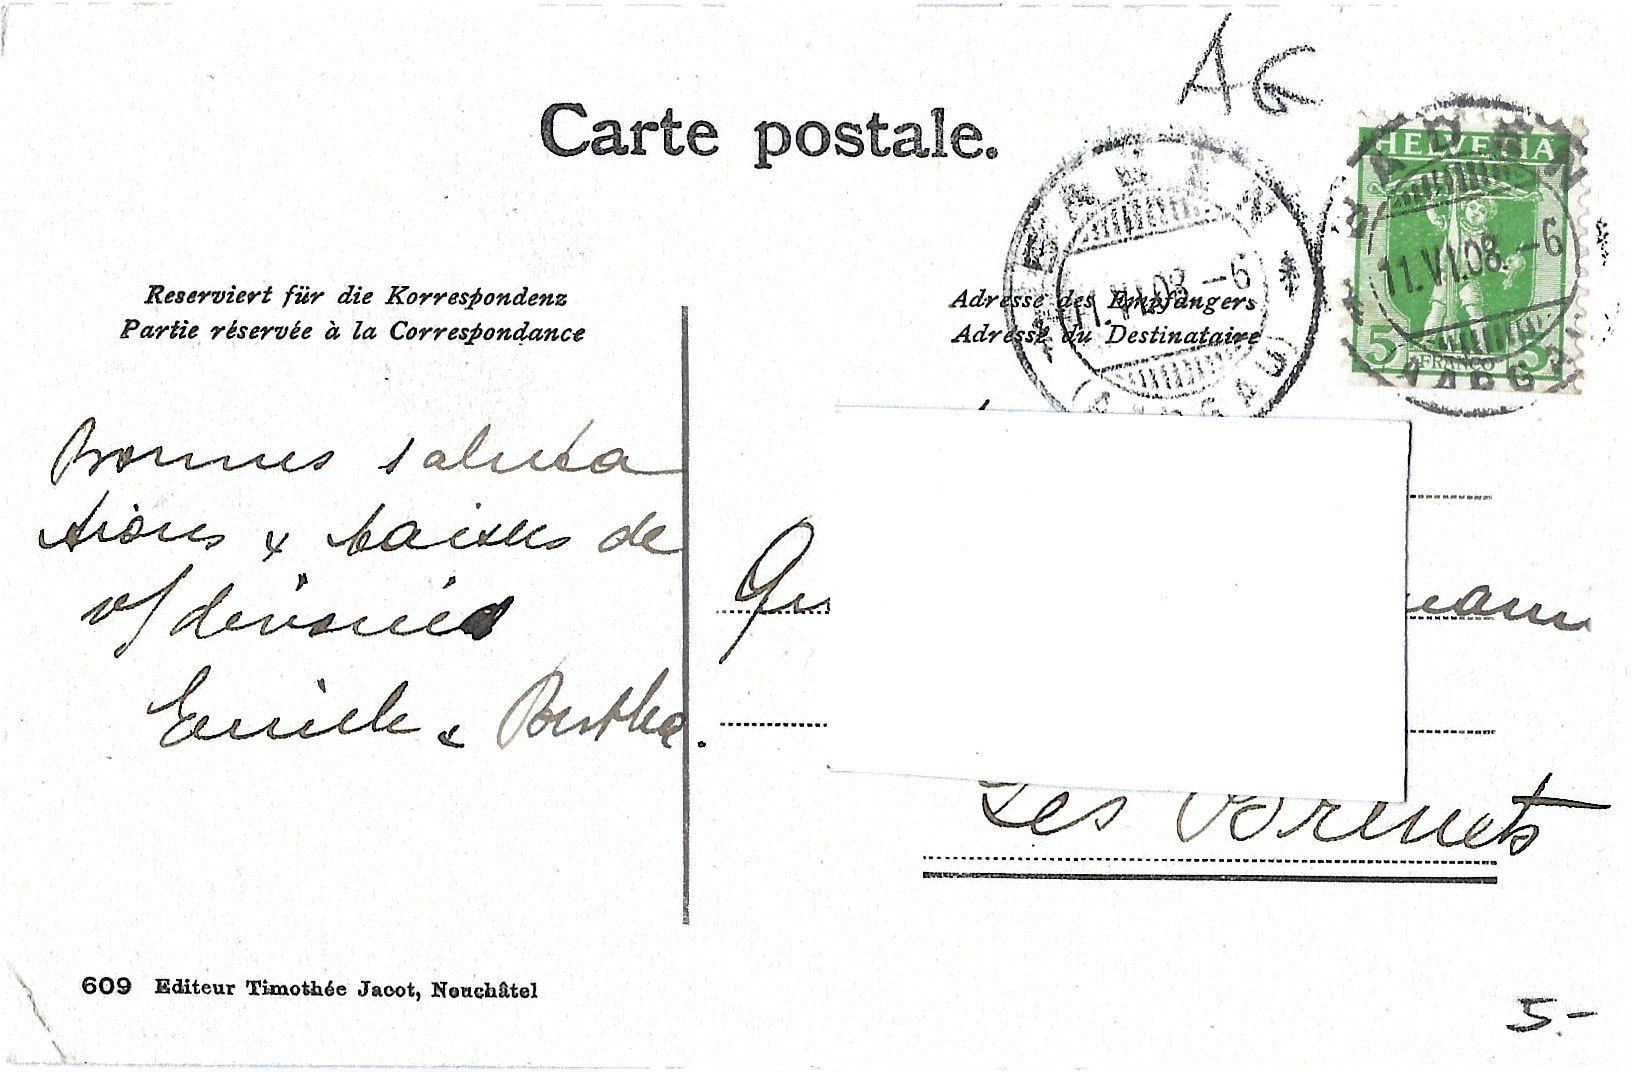 Carte postale.
A €
HELVETIA
BADEN
11.VI.08.-6
AARGAU
5 FRANCO 5
BADEN
11.VI.08.-6
(AARGAU)
Reserviert für die Korrespondenz
Partie réservée à la Correspondance
Adresse des Empfängers
Adresse du Destinataire
Bonnes saluta
tions & baisers de
v/ dévoués
Emile & Bertha.
Les Brenets
609 Editeur Timothée Jacot, Neuchâtel
5.-